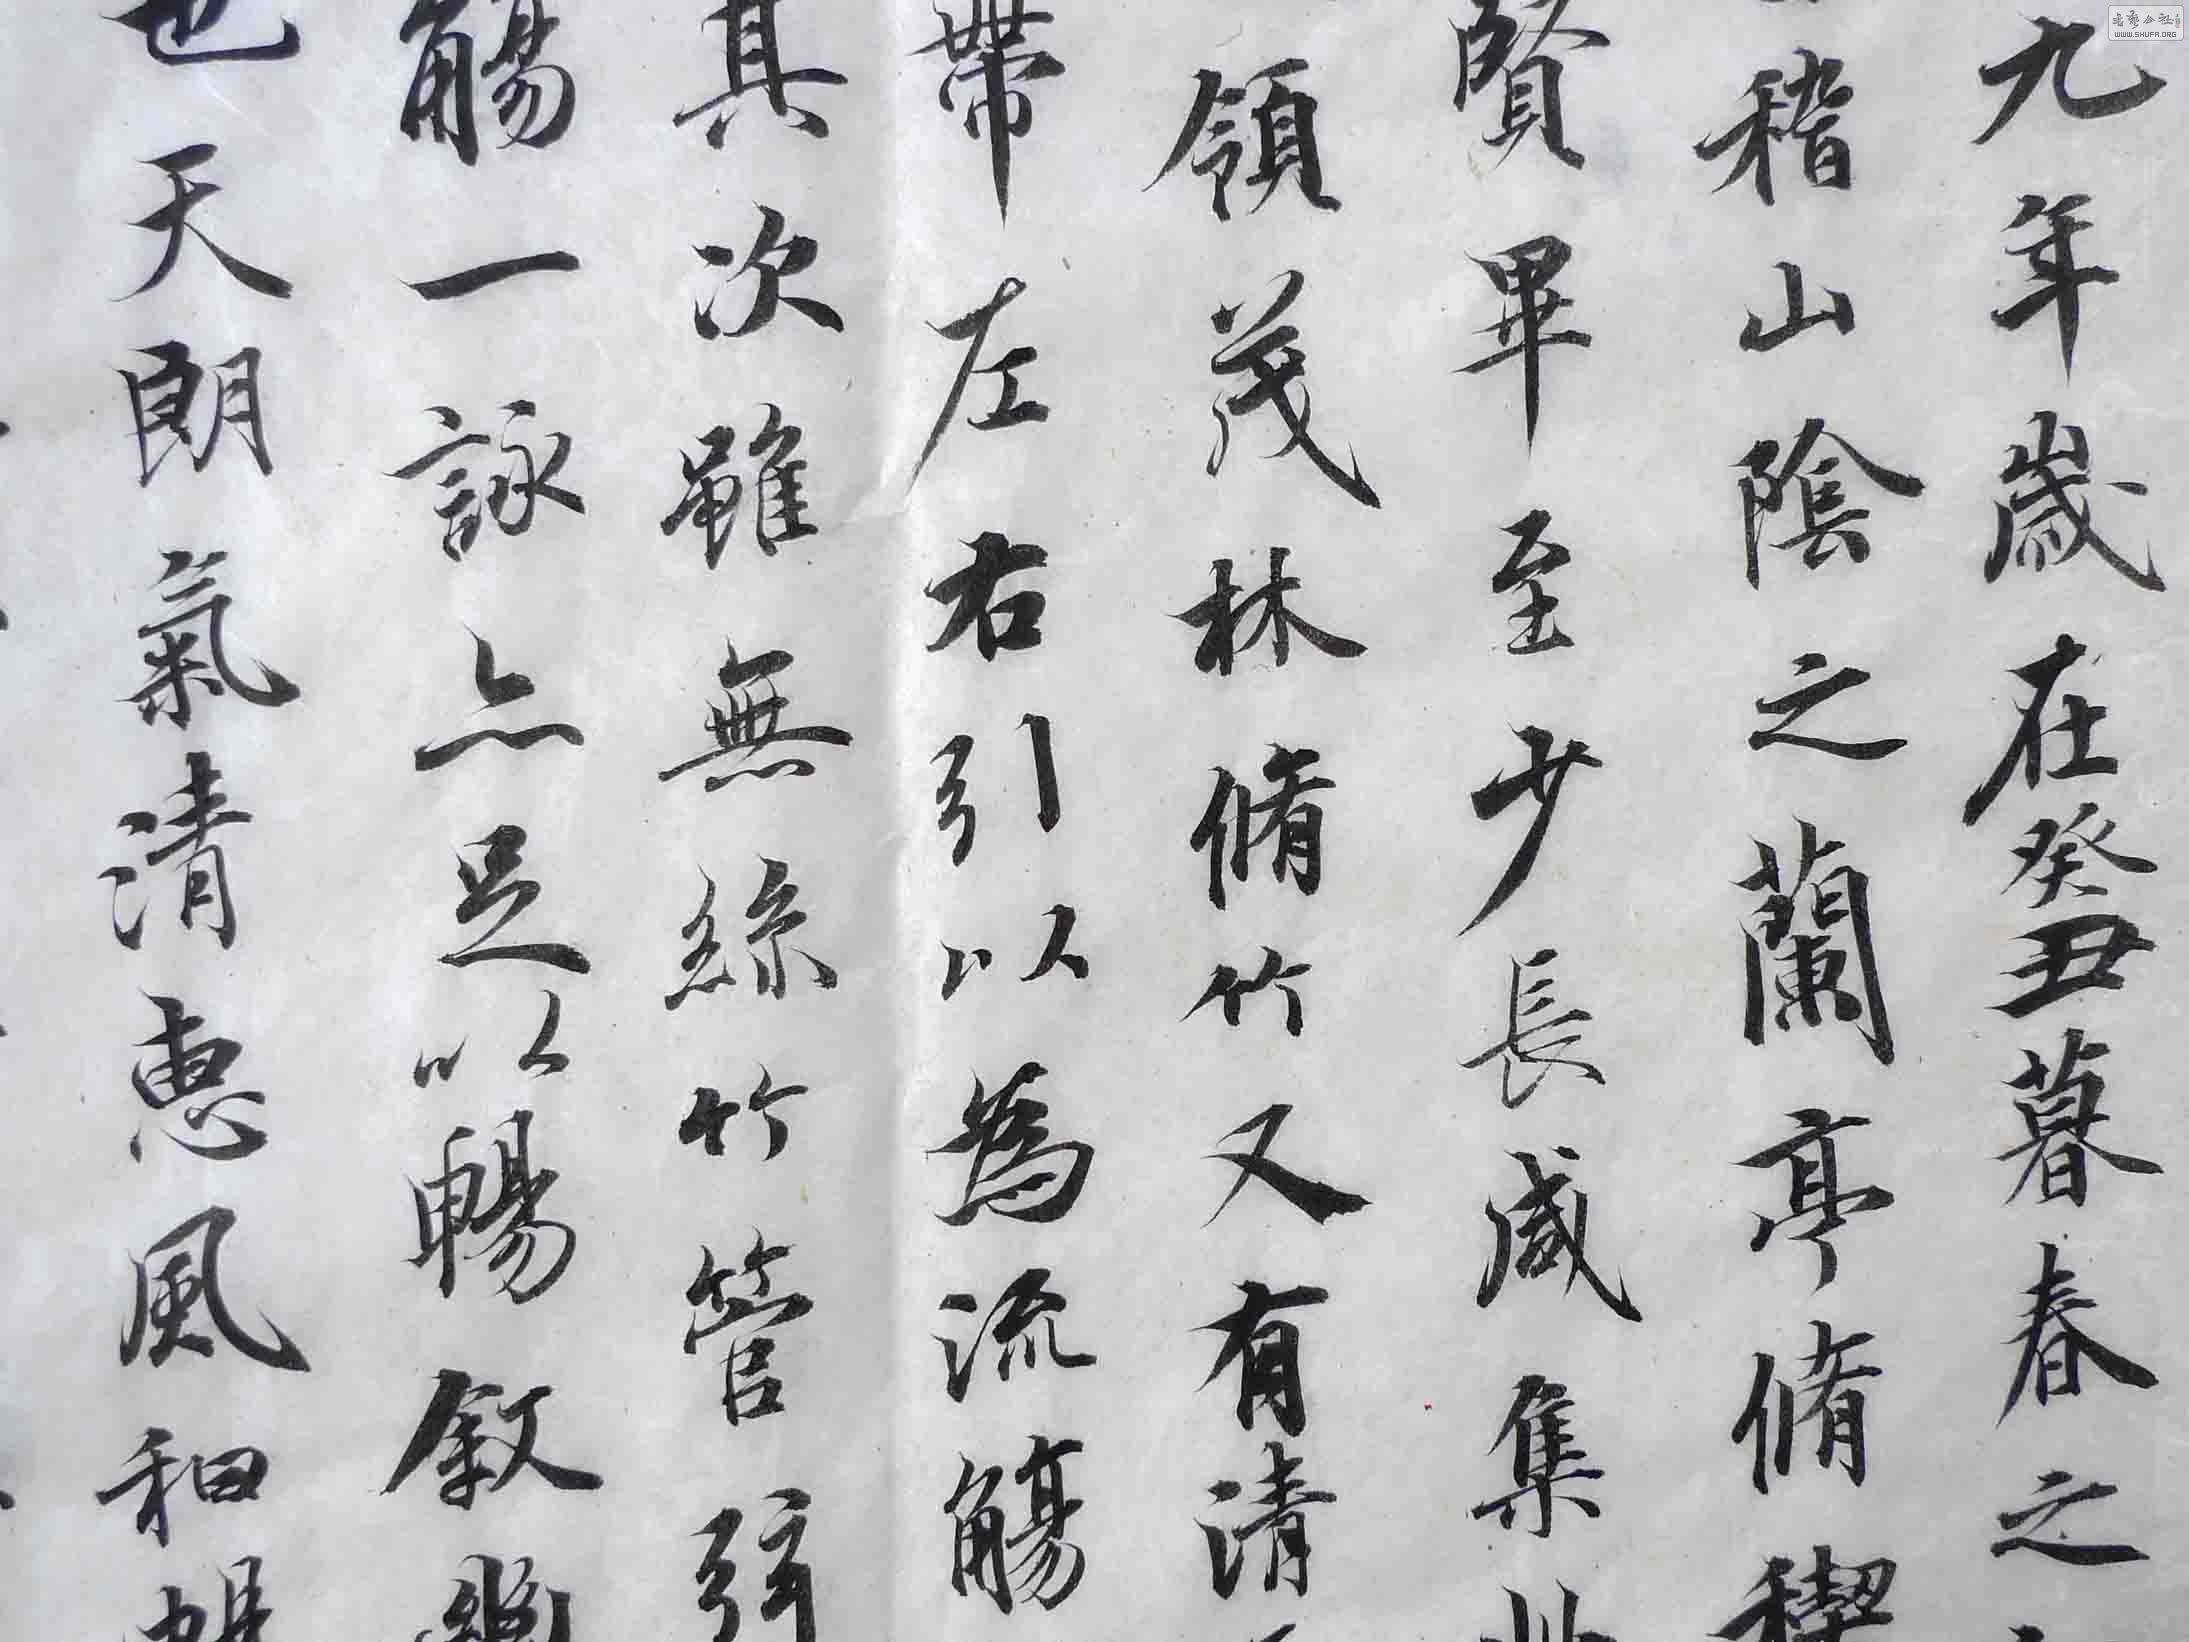 九年歲在癸丑暮春之
稽山陰之蘭亭脩禊
賢畢至少長咸集此
領茂林脩竹又有清
帶左右引以為流觴
其次雖無絲竹管弦
觴一詠亦足以暢敘幽
也天朗氣清惠風和暢
WWW.SHUFA.ORG